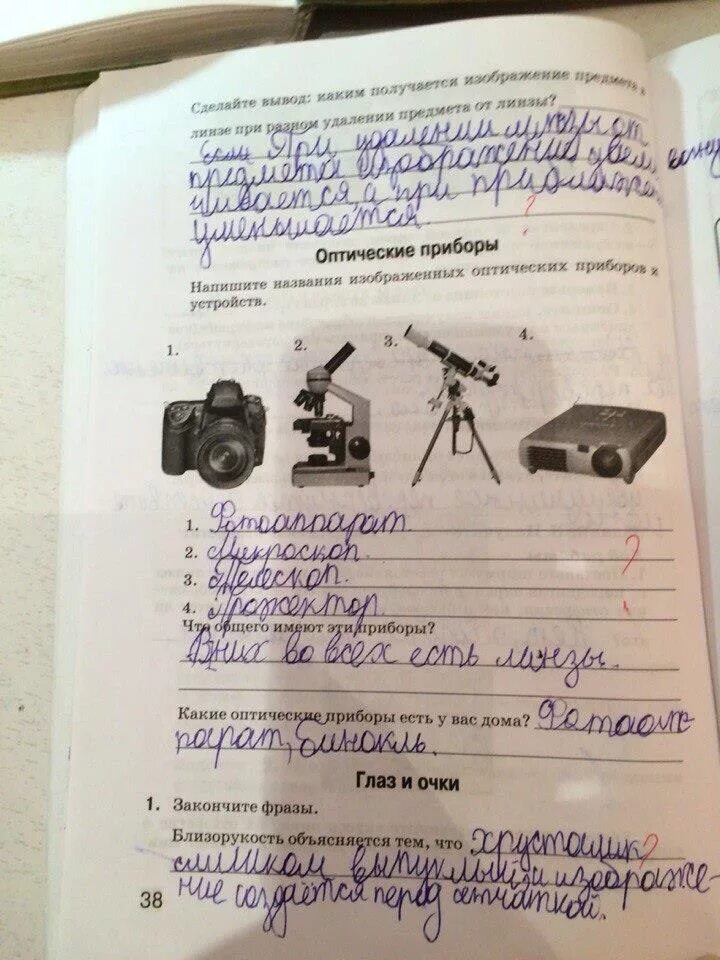 Сделайте вывод: каким получается изображение предмета в
линзе при разном удалении предмета от линзы?
Если При удалении линзы от
предмета изображение увели
чивается, а при приближе
уменьшается. ?
Оптические приборы
Напишите названия изображенных оптических приборов и
устройств.
1. 2. 3. 4.
1. Фотоаппарат
2. Микроскоп. ?
3. Телескоп.
4. Прожектор.
Что общего имеют эти приборы?
В них во всех есть линзы.
Какие оптические приборы есть у вас дома? Фотоап-
парат, бинокль.
Глаз и очки
1. Закончите фразы.
Близорукость объясняется тем, что хрусталик ?
слишком выпуклый и изображе-
ние создаётся перед сетчаткой.
38